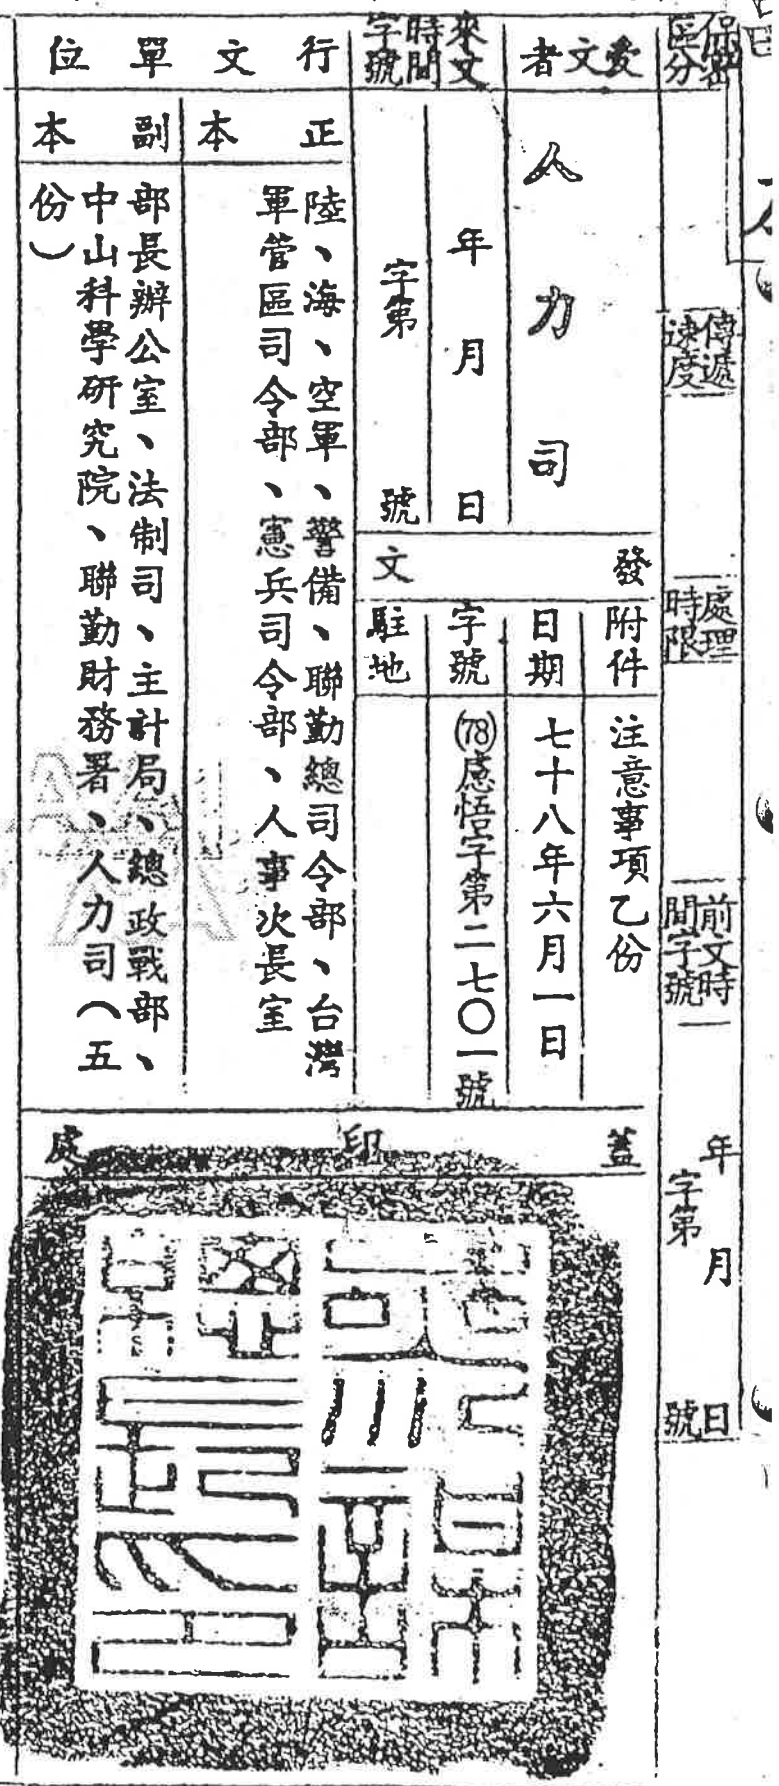 保密
區分
傳遞
速度
處理
時限
前文時
間字號
年 月 日
字第 號
受文者
人力司
來文
時間
字號
年 月 日
字第 號
發文
附件
注意事項乙份
日期
七十八年六月一日
字號
(78)慮悟字第二七〇一號
駐地
行文單位
正本
陸、海、空軍、警備、聯勤總司令部、台灣
軍管區司令部、憲兵司令部、人事次長室
副本
部長辦公室、法制司、主計局、總政戰部、
中山科學研究院、聯勤財務署、人力司(五
份)
蓋印處